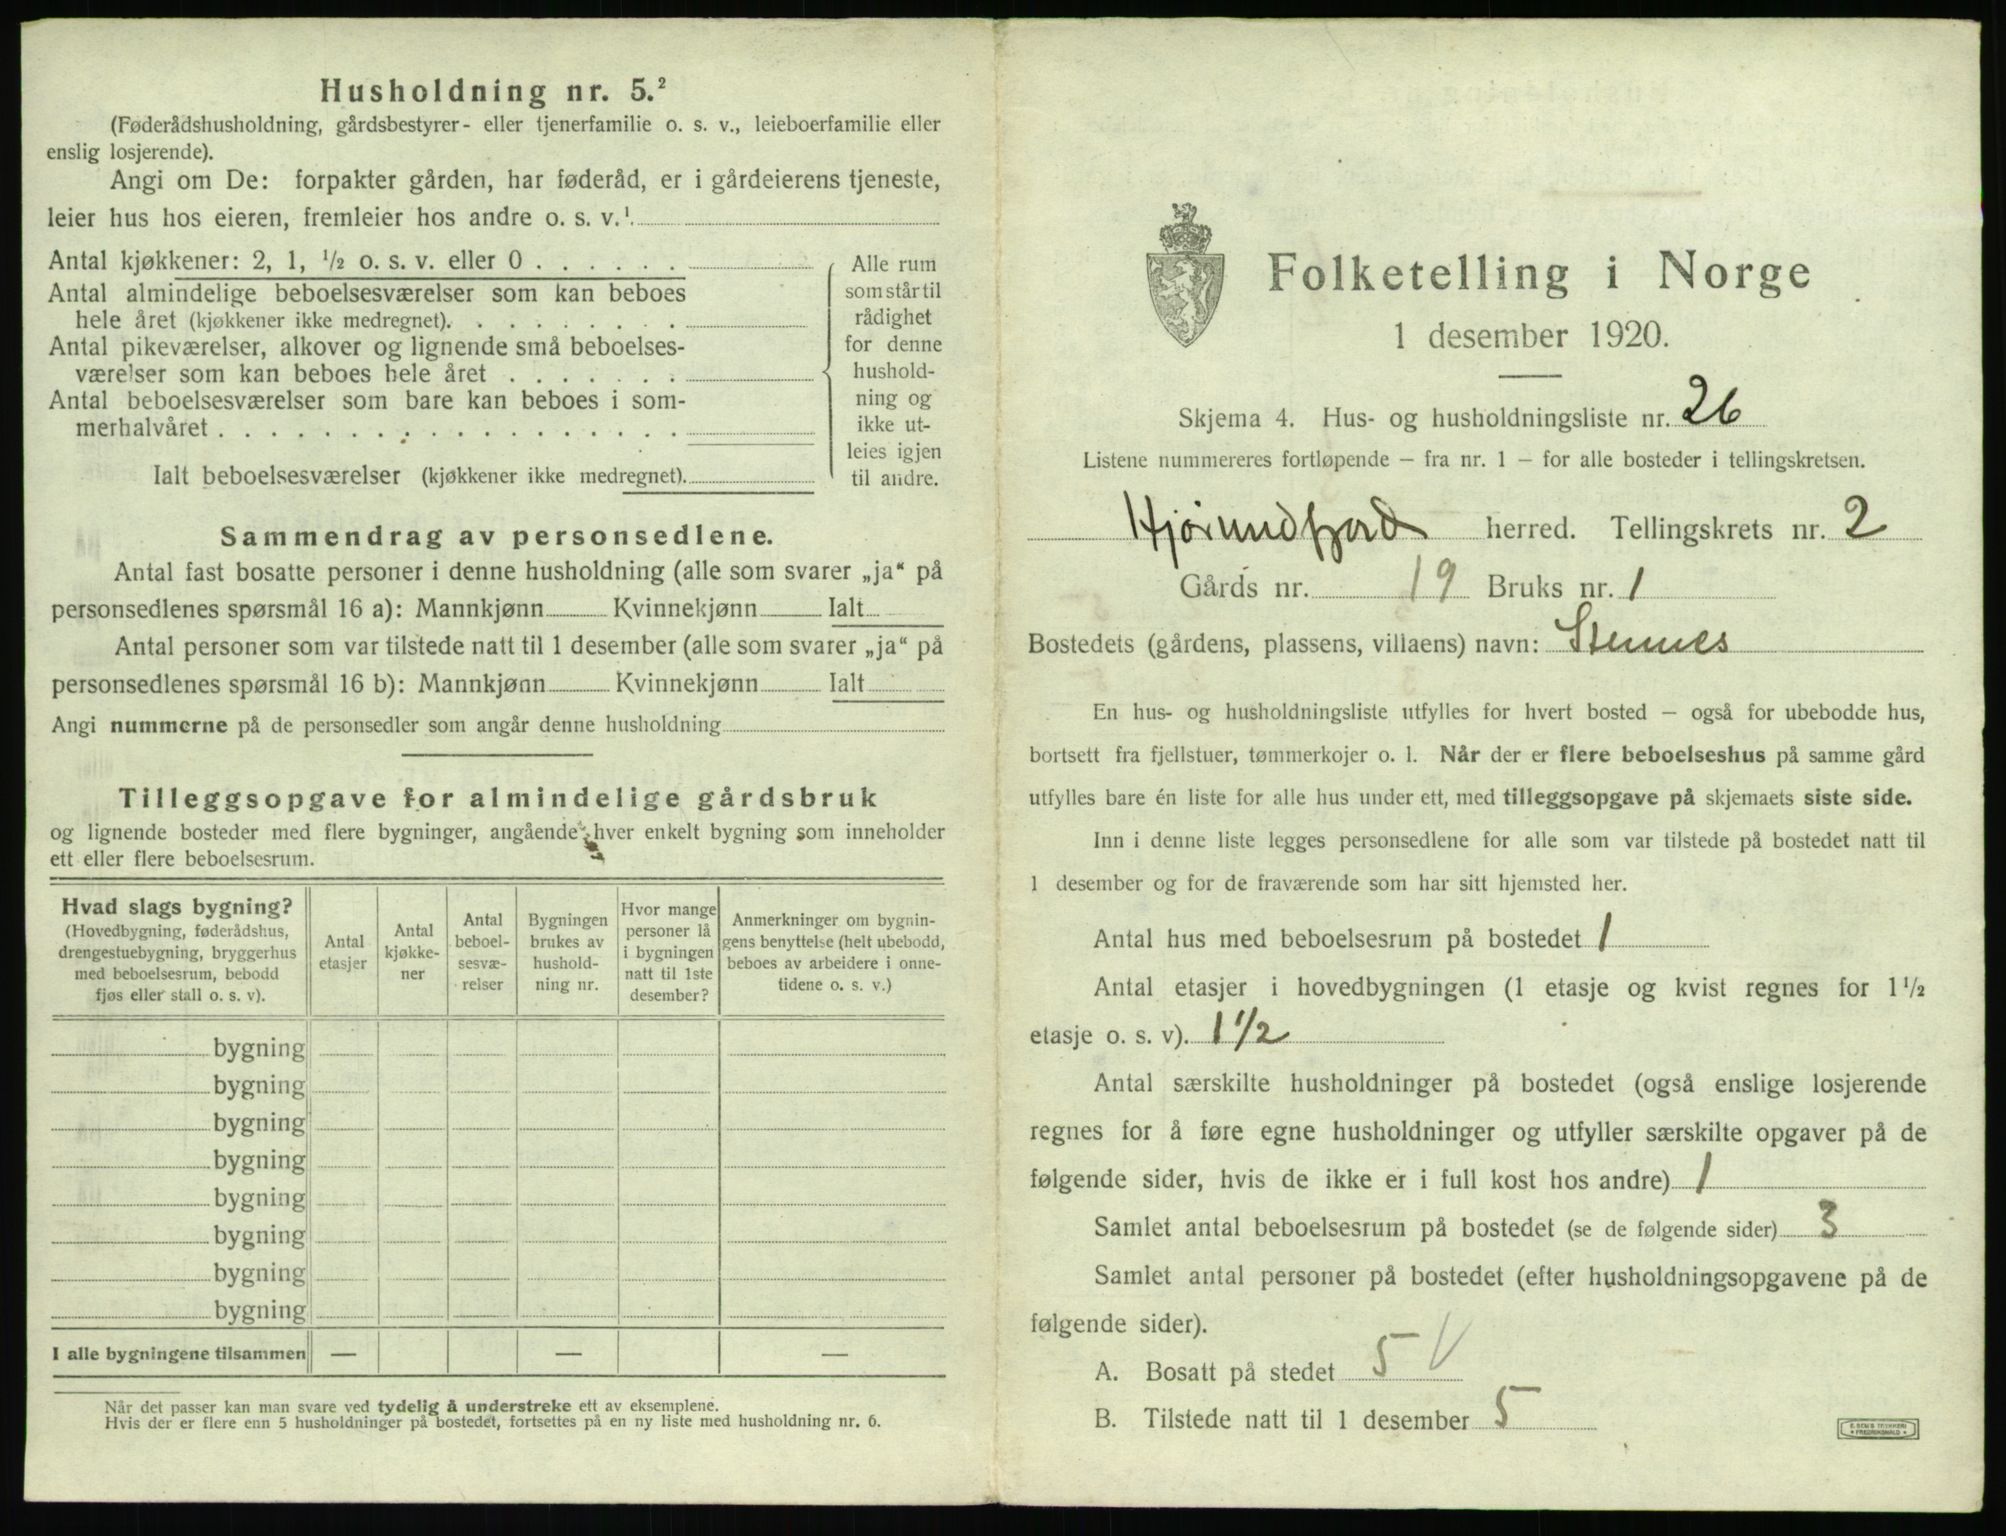 Husholdning nr. 5.²
(Føderådshusholdning, gårdsbestyrer- eller tjenerfamilie o. s. v., leieboerfamilie eller
enslig losjerende).
Angi om De: forpakter gården, har føderåd, er i gårdeierens tjeneste,
leier hus hos eieren, fremleier hos andre o. s. v.¹
Antal kjøkkener: 2, 1, ½ o. s. v. eller 0 . . . . . .
Antal almindelige beboelsesværelser som kan beboes
hele året (kjøkkener ikke medregnet). . . . . . . . .
Antal pikeværelser, alkover og lignende små beboelses-
værelser som kan beboes hele året . . . . . . .
Antal beboelsesværelser som bare kan beboes i som-
merhalvåret . . . . . . . . . . . . . . . . . .
Ialt beboelsesværelser (kjøkkener ikke medregnet).
Alle rum
som står til
rådighet
for denne
hushold-
ning og
ikke ut-
leies igjen
til andre.
Sammendrag av personsedlene.
Antal fast bosatte personer i denne husholdning (alle som svarer „ja“ på
personsedlenes spørsmål 16 a): Mannkjønn Kvinnekjønn Ialt
Antal personer som var tilstede natt til 1 desember (alle som svarer „ja“ på
personsedlenes spørsmål 16 b): Mannkjønn Kvinnekjønn Ialt
Angi nummerne på de personsedler som angår denne husholdning
Tilleggsopgave for almindelige gårdsbruk
og lignende bosteder med flere bygninger, angående hver enkelt bygning som inneholder
ett eller flere beboelsesrum.
Hvad slags bygning?
(Hovedbygning, føderådshus,
drengestuebygning, bryggerhus
med beboelsesrum, bebodd
fjøs eller stall o. s. v).
Antal
etasjer
Antal
kjøkke-
ner
Antal
beboel-
sesvæ-
relser
Bygningen
brukes av
hushold-
ning nr.
Hvor mange
personer lå
i bygningen
natt til 1ste
desember?
Anmerkninger om bygnin-
gens benyttelse (helt ubebodd,
beboes av arbeidere i onne-
tidene o. s. v.)
bygning
bygning
bygning
bygning
bygning
bygning
bygning
bygning
I alle bygningene tilsammen — — —
Når det passer kan man svare ved tydelig å understreke ett av eksemplene.
Hvis der er flere enn 5 husholdninger på bostedet, fortsettes på en ny liste med husholdning nr. 6.
Folketelling i Norge
1 desember 1920.
Skjema 4. Hus- og husholdningsliste nr. 26
Listene nummereres fortløpende – fra nr. 1 – for alle bosteder i tellingskretsen.
Hjørundfjord herred. Tellingskrets nr. 2
Gårds nr. 19 Bruks nr. 1
Bostedets (gårdens, plassens, villaens) navn: Stennes
En hus- og husholdningsliste utfylles for hvert bosted – også for ubebodde hus,
bortsett fra fjellstuer, tømmerkojer o. l. Når der er flere beboelseshus på samme gård
utfylles bare én liste for alle hus under ett, med tilleggsopgave på skjemaets siste side.
Inn i denne liste legges personsedlene for alle som var tilstede på bostedet natt til
1 desember og for de fraværende som har sitt hjemsted her.
Antal hus med beboelsesrum på bostedet 1
Antal etasjer i hovedbygningen (1 etasje og kvist regnes for 1½
etasje o. s. v). 1½
Antal særskilte husholdninger på bostedet (også enslige losjerende
regnes for å føre egne husholdninger og utfyller særskilte opgaver på de
følgende sider, hvis de ikke er i full kost hos andre) 1
Samlet antal beboelsesrum på bostedet (se de følgende sider) 3
Samlet antal personer på bostedet (efter husholdningsopgavene på de
følgende sider).
A. Bosatt på stedet 5 V
B. Tilstede natt til 1 desember 5